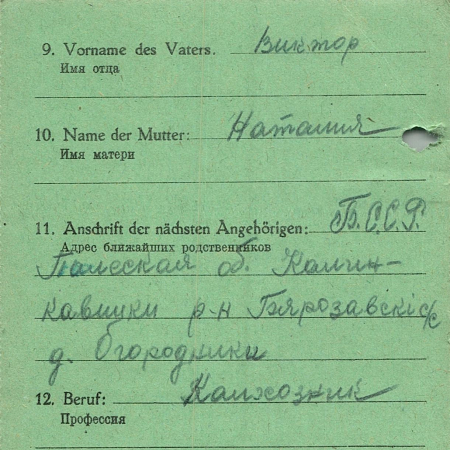 9. Vorname des Vaters. Виктор
Имя отца
10. Name der Mutter: Наталия
Имя матери
11. Anschrift der nächsten Angehörigen: Б.С.С.Р.
Адрес ближайших родственников
Палеская об. Калин-
кавицки р-н Бярозавскi с/с
д. Огородники
12. Beruf: Калхозник
Профессия